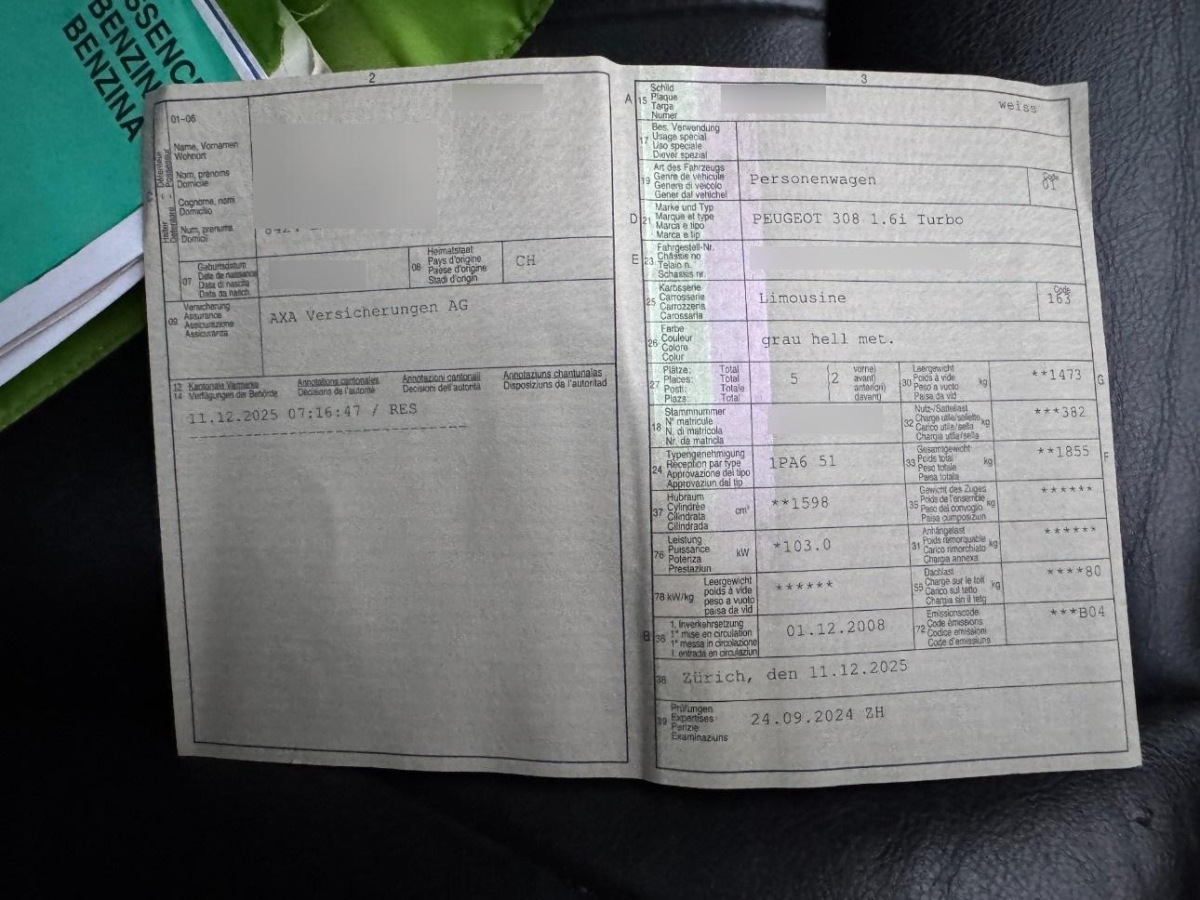 ESSENC
BENZIN
BENZINA
2
01-06
Name, Vornamen
Wohnort
Nom, prénoms
Domicile
Cognome, nomi
Domicilio
Num, prenums
Domicil
07
Geburtsdatum
Date de naissance
Data di nascita
Data da nasch.
08
Heimatstaat
Pays d'origine
Paese d'origine
Stadi d'origin
CH
09
Versicherung
Assurance
Assicurazione
Assicuranza
AXA Versicherungen AG
13
14
Kantonale Vermerke
Verfügungen der Behörde
Annotations cantonales
Décisions de l'autorité
Annotazioni cantonali
Decisioni dell'autorità
Annotaziuns chantunalas
Disposiziuns da l'autoritad
11.12.2025 07:16:47 / RES
3
A
15
Schild
Plaque
Targa
Numer
weiss
17
Bes. Verwendung
Usage spécial
Uso speciale
Diever spezial
19
Art des Fahrzeugs
Genre de véhicule
Genere di veicolo
Gener dal vehichel
Personenwagen
Code
01
D
21
Marke und Typ
Marque et type
Marca e tipo
Marca e tip
PEUGEOT 308 1.6i Turbo
E
23
Fahrgestell-Nr.
Châssis no
Telaio n.
Schassis nr.
25
Karosserie
Carrosserie
Carrozzeria
Carossaria
Limousine
Code
163
26
Farbe
Couleur
Colore
Colur
grau hell met.
27
Plätze: Total
Places: Total
Posti: Totale
Plazs: Total
5
(2
vorne)
avant)
anteriori)
davant)
30
Leergewicht
Poids à vide
Peso a vuoto
Paisa da vid
kg
**1473
G
18
Stammnummer
N° matricule
N. di matricola
Nr. da matricla
32
Nutz-/Sattellast
Charge utile/sellette
Carico utile/sella
Chargia utila/sella
kg
***382
24
Typengenehmigung
Réception par type
Approvazione del tipo
Approvaziun dal tip
1PA6 51
33
Gesamtgewicht
Poids total
Peso totale
Paisa totala
kg
**1855
F
37
Hubraum
Cylindrée
Cilindrata
Cilindrada
cm³
**1598
35
Gewicht des Zuges
Poids de l'ensemble
Peso del convoglio
Paisa cumposiziun
kg
******
76
Leistung
Puissance
Potenza
Prestaziun
kW
*103.0
31
Anhängelast
Poids remorquable
Carico rimorchiato
Chargia annexa
kg
******
78 kW/kg
Leergewicht
poids à vide
peso a vuoto
paisa da vid
******
55
Dachlast
Charge sur le toit
Carico sul tetto
Chargia sin il tetg
kg
****80
B
36
1. Inverkehrsetzung
1re mise en circulation
1a messa in circolazione
1. entrada en circulaziun
01.12.2008
72
Emissionscode
Code émissions
Codice emissioni
Code d'emissiuns
***B04
38
Zürich, den 11.12.2025
39
Prüfungen
Expertises
Perizie
Examinaziuns
24.09.2024 ZH